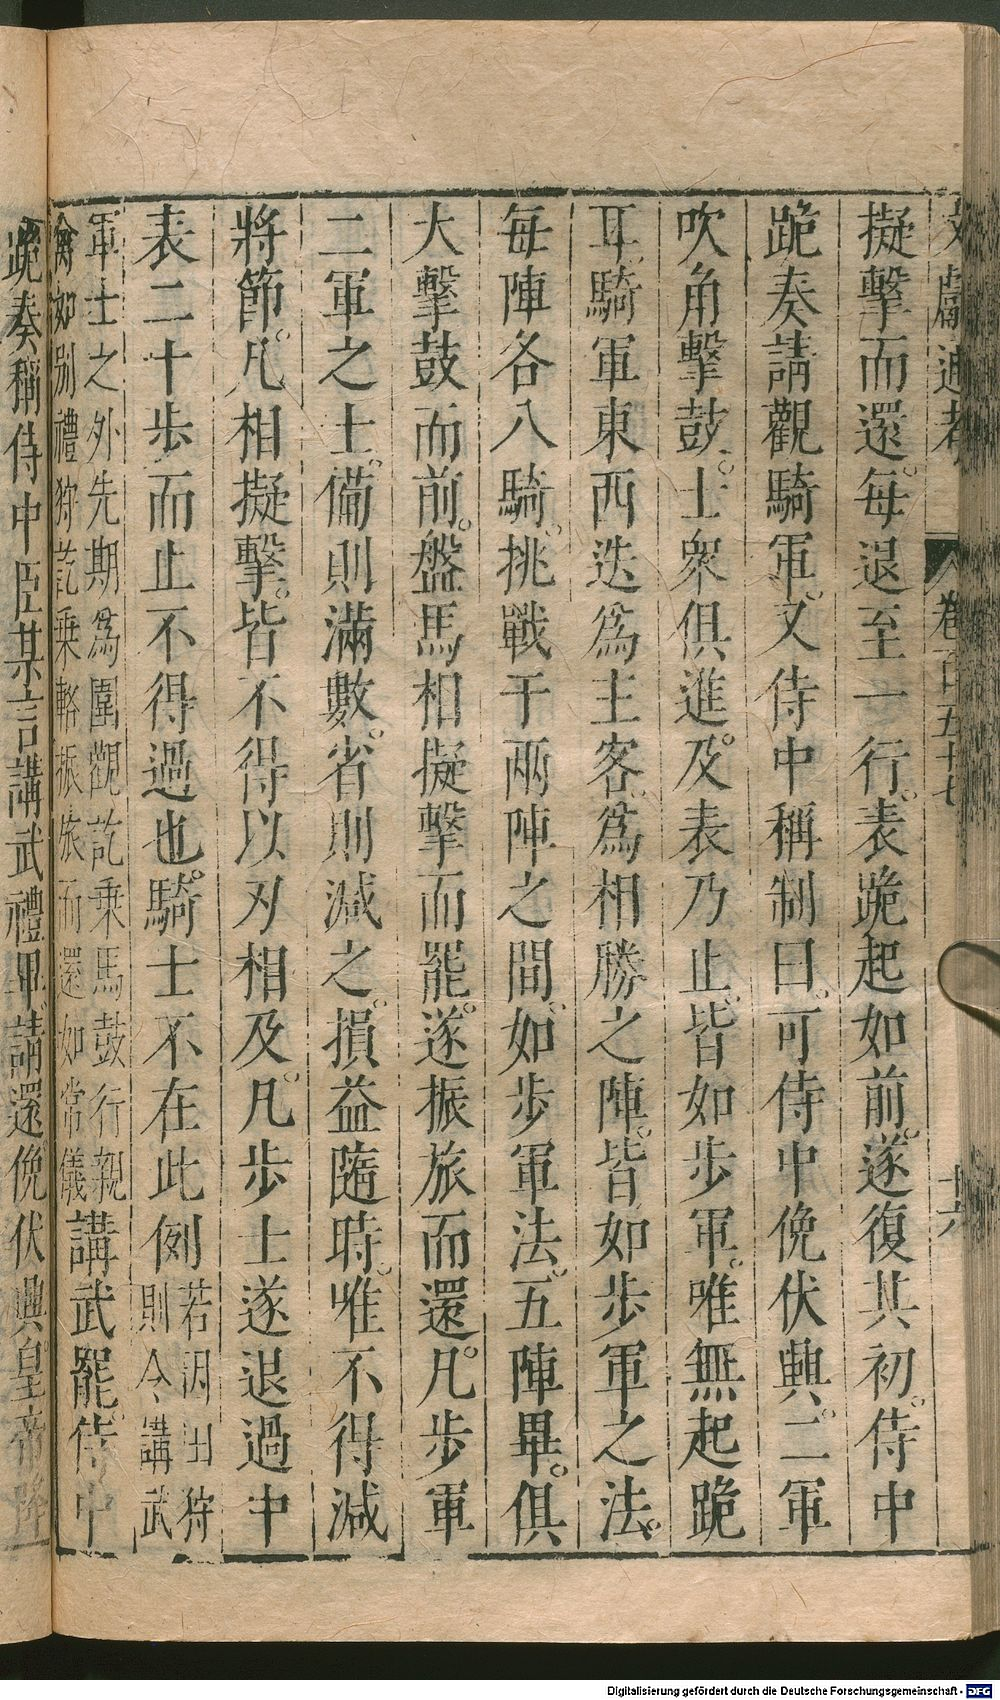 文獻通考 卷百五十七 十六
擬擊而還。每退至一行。表跪起如前。遂復其初。侍中
跪奏請觀騎軍。又侍中稱制曰。可侍中俛伏興。二軍
吹角擊鼓。士衆俱進。及表乃止。皆如步軍。唯無起跪
耳。騎軍東西迭爲主客。爲相勝之陣。皆如步軍之法。
每陣各八騎。挑戰于兩陣之間。如步軍法。五陣畢。俱
大擊鼓而前。盤馬相擬擊而罷。遂振旅而還。凡步軍
二軍之士。備則滿數。省則減之。損益隨時。唯不得減
將節。凡相擬擊。皆不得以刃相及。凡步士遂退過中
表二十步而止不得過也。騎士不在此例 若因田狩則令講武
軍士之外先期爲圍觀訖乘馬鼓行親禽如別禮狩訖乗輅振旅而還如常儀 講武罷。侍中
跪奏稱侍中臣某言講武禮畢。請還。俛伏興。皇帝降
Digitalisierung gefördert durch die Deutsche Forschungsgemeinschaft - DFG